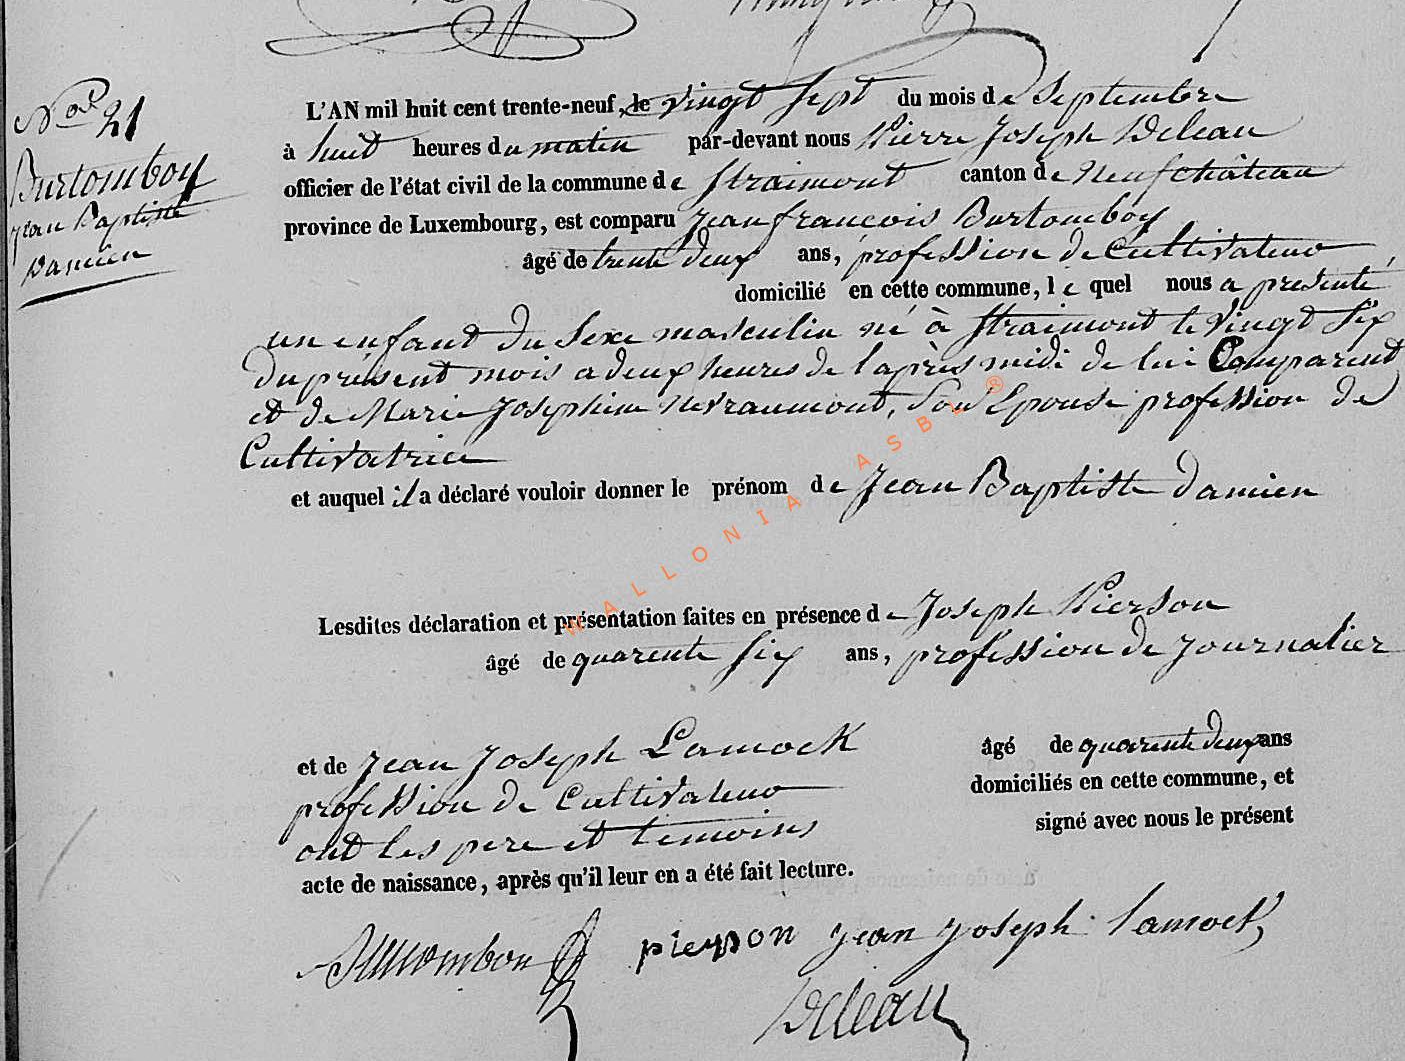 N° 21
Burtomboy
Jean Baptiste
Damien
L'AN mil huit cent trente-neuf, le vingt sept du mois de Septembre
à huit heures du matin par-devant nous Pierre Joseph Deleau
officier de l'état civil de la commune de Straimont canton de Neufchâteau
province de Luxembourg, est comparu Jean francois Burtomboy
âgé de trente deux ans, profession de Cultivateur
domicilié en cette commune, lequel nous a présenté
un enfant du Sexe masculin né à Straimont le vingt Six
du présent mois a deux heures de l'après midi de lui Comparent
et de Marie Josephine Nevraumont, Son Epouse profession de
Cultivatrice
et auquel il a déclaré vouloir donner le prénom de Jean Baptiste Damien
Lesdites déclaration et présentation faites en présence de Joseph Pierson
âgé de quarente Six ans, profession de journalier
et de Jean Joseph Lamock âgé de quarente deux ans
profession de Cultivateur domiciliés en cette commune, et
ont les pere et temoins signé avec nous le présent
acte de naissance, après qu'il leur en a été fait lecture.
pierson jean joseph lamock
Deleau
WALLONIA ASBL ®